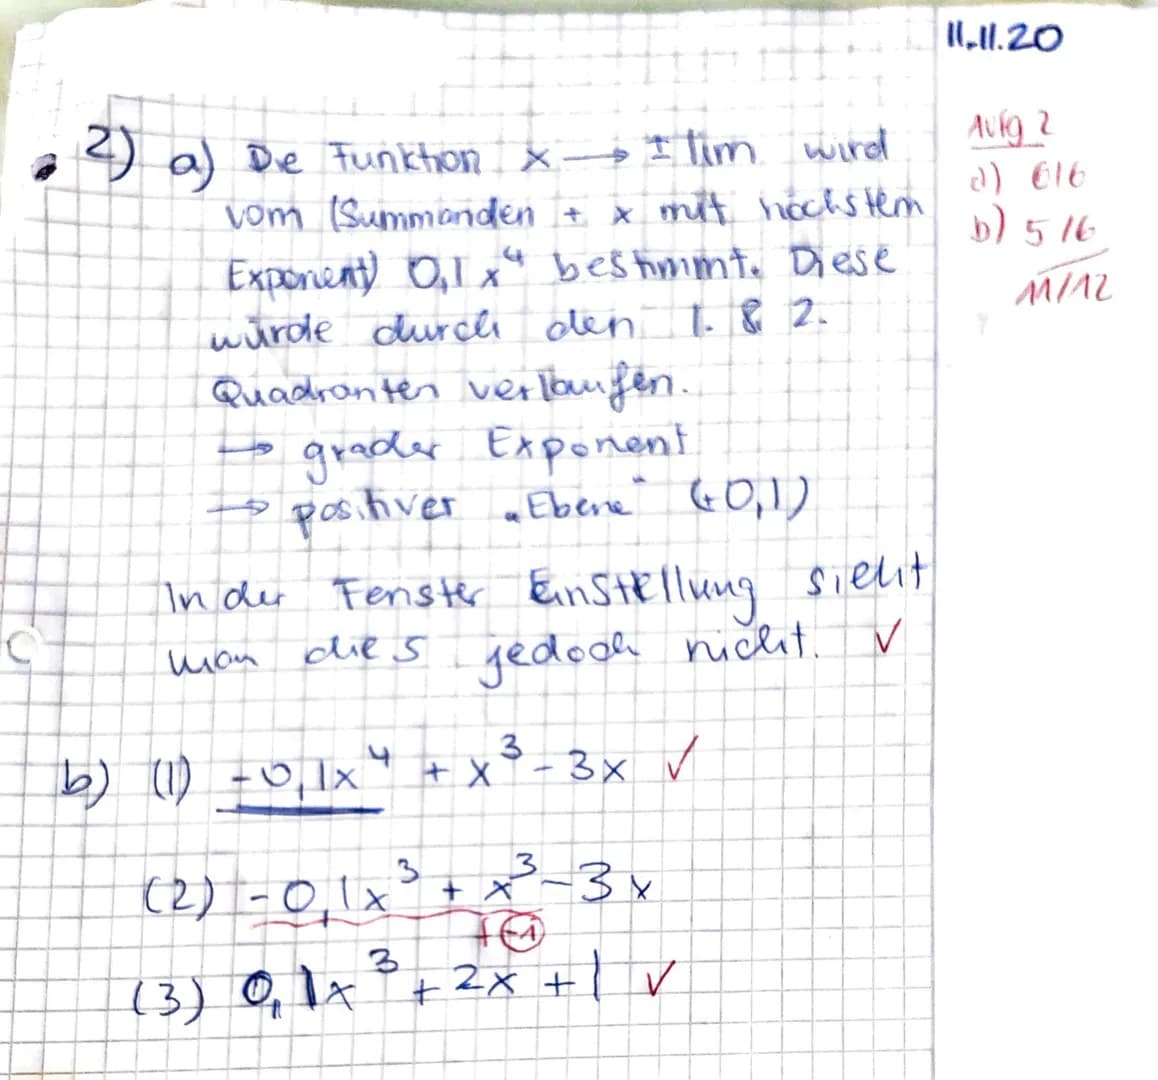 11.11.20
2) a) Die Funktion x → ± lim wird
vom (Summanden + x mit höchstem
Exponent) 0,1 x⁴ bestimmt. Diese
würde durch den 1. & 2.
Quadranten verlaufen.
→ grader Exponent
→ positiver „Ebene" (+0,1)
In der Fenster Einstellung sieht
man dies jedoch nicht. ✓
b) (1) -0,1x⁴ + x³ - 3x ✓
(2) -0,1x³ + x³ - 3x
f (-1)
(3) 0,1x³ + 2x + 1 ✓
Aufg 2
a) 6/6
b) 5/6
11/12